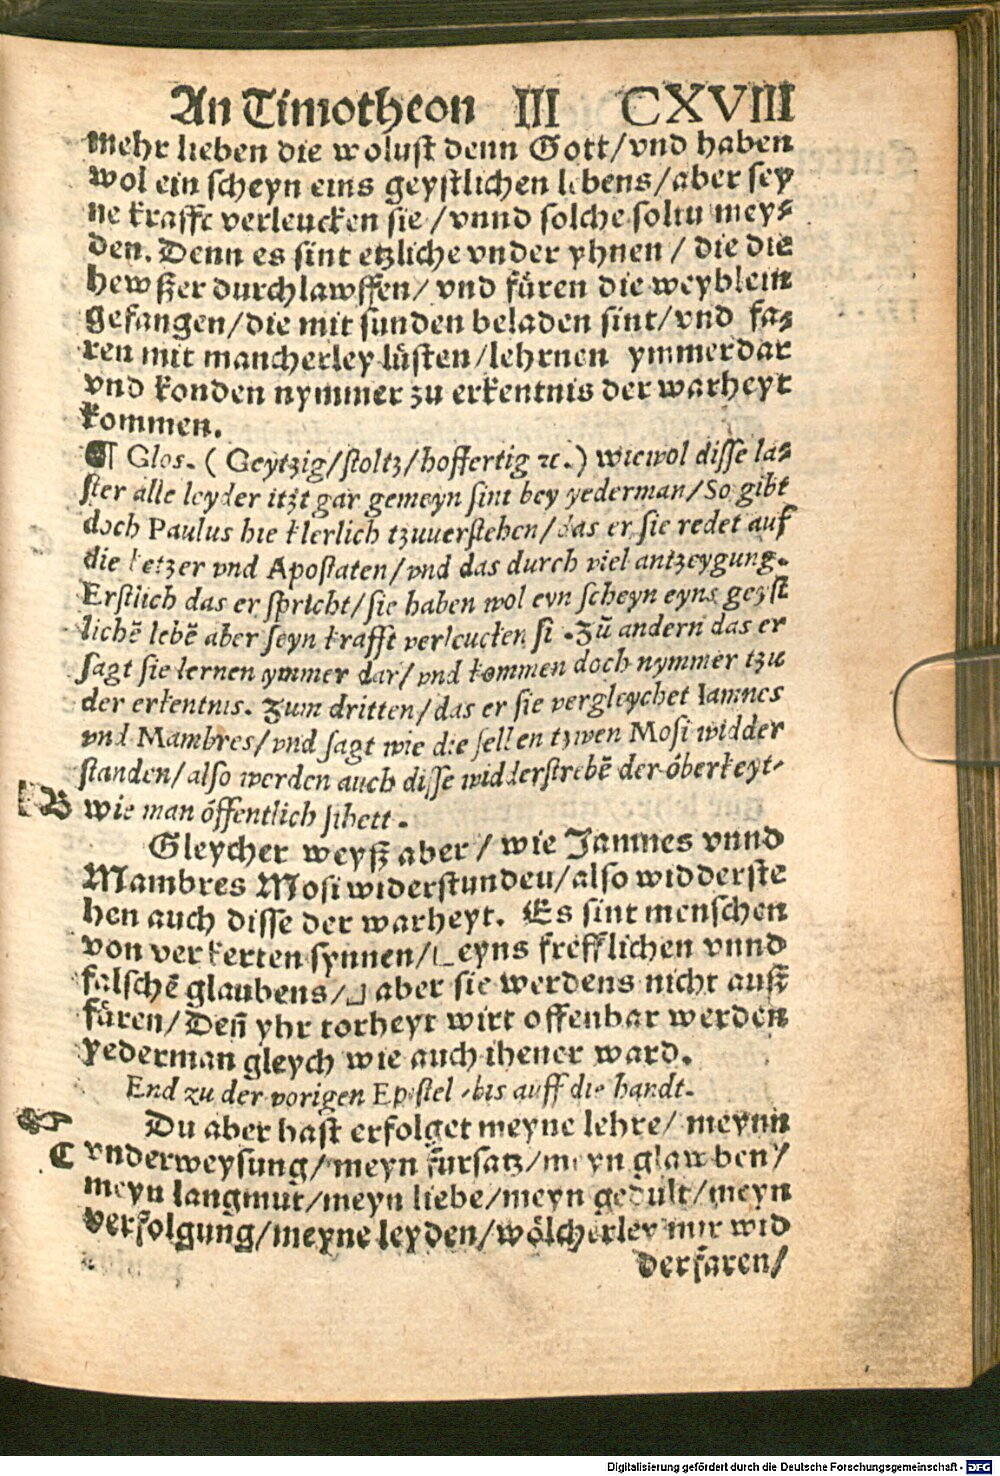 An Timotheon III CXVIII
mehr lieben die wolust denn Gott/vnd haben
wol ein scheyn eins geystlichen lebens/aber sey
ne krafft verleucken sie/vnnd solche soltu mey⸗
den. Denn es sint etzliche vnder yhnen/ die die
hewßer durchlawffen/ vnd füren die weyblein
gefangen/die mit sunden beladen sint/vnd fa⸗
ren mit mancherley lüsten/lehrnen ymmerdar
vnd konden nymmer zu erkentnis der warheyt
kommen.
¶ Glos. ( Geytzig/stoltz/hoffertig ⁊c.) wiewol disse la⸗
ster alle leyder itzt gar gemeyn sint bey yederman/So gibt
doch Paulus hie klerlich tzuuerstehen/das er sie redet auf
die ketzer vnd Apostaten/vnd das durch viel antzeygung.
Erstlich das er spricht/sie haben wol eyn scheyn eyns geyst
lichē lebē aber seyn krafft verleucken si .Zū andern das er
sagt sie lernen ymmer dar/vnd kommen doch nymmer tzu
der erkentnis. Zum dritten/das er sie vergleychet Iamnes
vnd Mambres/vnd sagt wie die sellen tzwen Mosi widder
standen/also werden auch disse widderstrebē der öberkeyt⸗
B wie man öffentlich sihett.
Gleycher weyß aber/ wie Jamnes vnnd
Mambres Mosi widerstunden/also widderste
hen auch disse der warheyt. Es sint menschen
von verkerten synnen/⌊eyns frefflichen vnnd
falschē glaubens/⌋ aber sie werdens nicht auß
füren/ Deñ yhr torheyt wirt offenbar werden
yederman gleych wie auch ihener ward.
End zu der vorigen Epistel bis auff die handt.
☞ Du aber hast erfolget meyne lehre/ meynn
C vnderweysung/meyn fürsatz/meyn glawben/
meyn langmut/meyn liebe/meyn gedult/meyn
verfolgung/meyne leyden/wölcherley mir wid
derfaren/
Digitalisierung gefördert durch die Deutsche Forschungsgemeinschaft - DFG